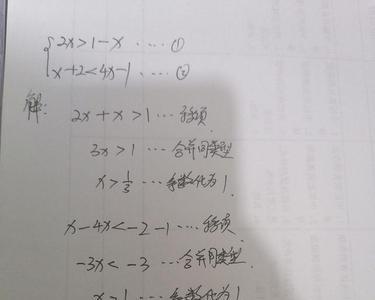 {2x>1-x ····①
x+2<4x-1 ···②
解: 2x+x>1···移项
3x>1 ···合并同类型
x>1/3 ···系数化为1
x-4x<-2-1····移项
-3x<-3 ···合并同类型
x>1 ···系数化为1